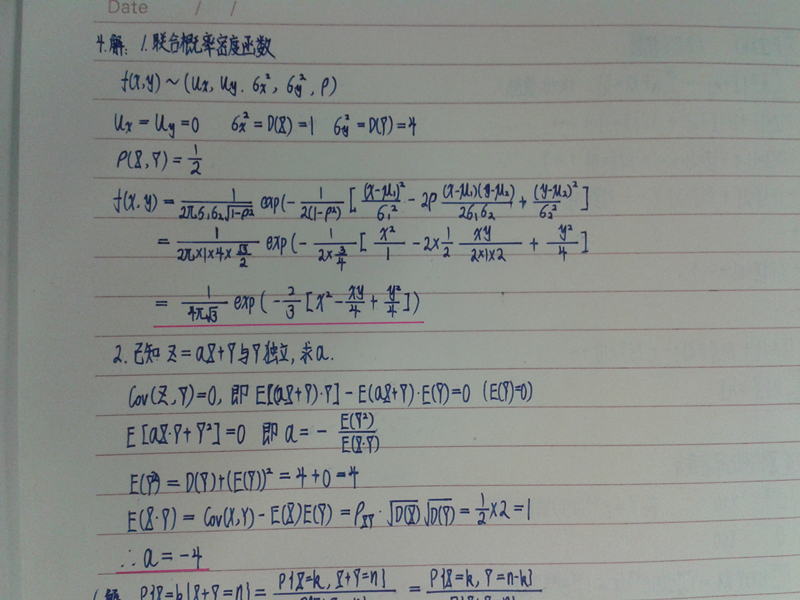 Date / /
4.解: 1.联合概率密度函数
f(x,y)~(ux, uy. 6x², 6y², ρ)
ux = uy = 0 6x² = D(X) = 1 6y² = D(Y) = 4
ρ(X,Y) = 1/2
f(x,y) = 1/(2π6₁6₂√(1-ρ²)) exp(- 1/(2(1-ρ²)) [ (x-μ₁)²/6₁² - 2ρ (x-μ₁)(y-μ₂)/(26₁6₂) + (y-μ₂)²/6₂² ]
= 1/(2π×1×4×√3/2) exp(- 1/(2×3/4) [ x²/1 - 2×1/2 xy/(2×1×2) + y²/4 ]
= 1/(4π√3) exp(- 2/3 [x² - xy/4 + y²/4])
2.已知 Z = aX+Y与Y独立,求a.
Cov(Z,Y)=0, 即 E[(aX+Y)·Y] - E(aX+Y)·E(Y)=0 (E(Y)=0)
E[aX·Y+Y²]=0 即 a = - E(Y²)/E(X·Y)
E(Y²) = D(Y)+(E(Y))² = 4+0=4
E(X·Y) = Cov(X,Y) - E(X)E(Y) = ρXY·√D(X) √D(Y) = 1/2×2 = 1
∴ a = -4
解 P{X=k|X+Y=n} = P{X=k, X+Y=n} = P{X=k, Y=n-k}